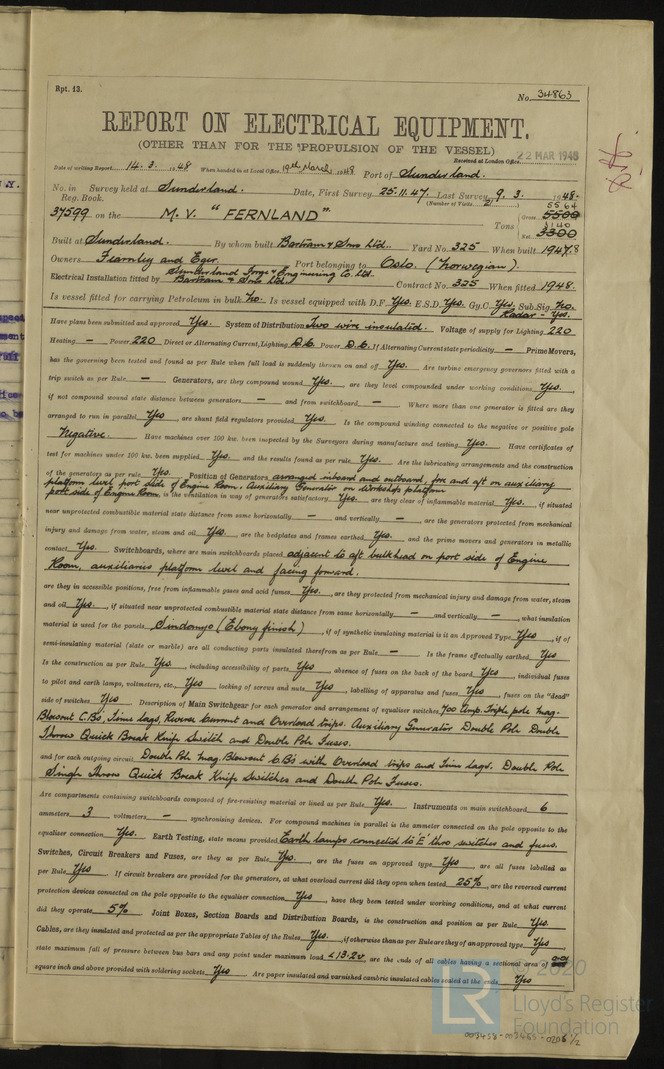 Rpt. 13.
No. 34863
REPORT ON ELECTRICAL EQUIPMENT.
(OTHER THAN FOR THE PROPULSION OF THE VESSEL)
Received at London Office 22 MAR 1948
Date of writing Report 14.3.1948 When handed in at Local Office 19th March 1948 Port of Sunderland.
No. in Survey held at Sunderland. Date, First Survey 25.11.47. Last Survey 9.3. 1948.
Reg. Book. (Number of Visits 21)
37599 on the M.V. "FERNLAND" Tons Gross 5500 5564 Net 3300 3140
Built at Sunderland. By whom built Bartram & Sons Ltd.. Yard No. 325 When built 1947.8
Owners Fearnley and Eger. Port belonging to Oslo. (Norwegian).
Electrical Installation fitted by Sunderland Forge & Engineering Co. Ltd. Bartram & Sons Ltd. Contract No. 325 When fitted 1948.
Is vessel fitted for carrying Petroleum in bulk No. Is vessel equipped with D.F. Yes. E.S.D. Yes. Gy.C. Yes. Sub.Sig. No.
Radar - Yes.
Have plans been submitted and approved Yes. System of Distribution Two wire insulated. Voltage of supply for Lighting 220
Heating — Power 220 Direct or Alternating Current, Lighting D.C. Power D.C. If Alternating Current state periodicity — Prime Movers,
has the governing been tested and found as per Rule when full load is suddenly thrown on and off Yes. Are turbine emergency governors fitted with a
trip switch as per Rule — Generators, are they compound wound Yes. are they level compounded under working conditions Yes.
if not compound wound state distance between generators — and from switchboard — Where more than one generator is fitted are they
arranged to run in parallel Yes, are shunt field regulators provided Yes. Is the compound winding connected to the negative or positive pole
Negative. Have machines over 100 kw. been inspected by the Surveyors during manufacture and testing Yes. Have certificates of
test for machines under 100 kw. been supplied Yes. and the results found as per rule Yes. Are the lubricating arrangements and the construction
of the generators as per rule Yes. Position of Generators arranged inboard and outboard, fore and aft on auxiliary
platform level port side of Engine Room. Auxiliary Generator on Workshop platform
port side of Engine Room, is the ventilation in way of generators satisfactory Yes. are they clear of inflammable material Yes. if situated
near unprotected combustible material state distance from same horizontally — and vertically — are the generators protected from mechanical
injury and damage from water, steam and oil Yes. are the bedplates and frames earthed Yes. and the prime movers and generators in metallic
contact Yes. Switchboards, where are main switchboards placed adjacent to aft bulkhead on port side of Engine
Room, auxiliaries platform level and facing forward.
are they in accessible positions, free from inflammable gases and acid fumes Yes. are they protected from mechanical injury and damage from water, steam
and oil Yes. if situated near unprotected combustible material state distance from same horizontally — and vertically —, what insulation
material is used for the panels Sindanyo (Ebony finish), if of synthetic insulating material is it an Approved Type Yes, if of
semi-insulating material (slate or marble) are all conducting parts insulated therefrom as per Rule — Is the frame effectually earthed Yes
Is the construction as per Rule Yes, including accessibility of parts Yes, absence of fuses on the back of the board Yes, individual fuses
to pilot and earth lamps, voltmeters, etc., Yes locking of screws and nuts Yes, labelling of apparatus and fuses Yes, fuses on the "dead"
side of switches Yes Description of Main Switchgear for each generator and arrangement of equaliser switches 700 Amp Triple pole Mag.
Blowout C.B's, Time lags, Reverse Current and Overload trips. Auxiliary Generator Double Pole Double
Throw Quick Break Knife Switch and Double Pole Fuses.
and for each outgoing circuit Double Pole Mag. Blowout C.B's with Overload trips and Time lags. Double Pole
Single Throw Quick Break Knife Switches and Double Pole Fuses.
Are compartments containing switchboards composed of fire-resisting material or lined as per Rule Yes. Instruments on main switchboard 6
ammeters 3 voltmeters — synchronising devices. For compound machines in parallel is the ammeter connected on the pole opposite to the
equaliser connection Yes. Earth Testing, state means provided Earth lamps connected to 'E' thro switches and fuses.
Switches, Circuit Breakers and Fuses, are they as per Rule Yes. are the fuses an approved type Yes, are all fuses labelled as
per Rule Yes If circuit breakers are provided for the generators, at what overload current did they open when tested 25%, are the reversed current
protection devices connected on the pole opposite to the equaliser connection Yes, have they been tested under working conditions, and at what current
did they operate 5% Joint Boxes, Section Boards and Distribution Boards, is the construction and position as per Rule Yes.
Cables, are they insulated and protected as per the appropriate Tables of the Rules Yes., if otherwise than as per Rule are they of an approved type Yes
state maximum fall of pressure between bus bars and any point under maximum load <13.2v, are the ends of all cables having a sectional area of 0.01
square inch and above provided with soldering sockets Yes Are paper insulated and varnished cambric insulated cables sealed at the ends Yes
LR
© 2020
Lloyd's Register
Foundation
003458-003465-0206 1/2